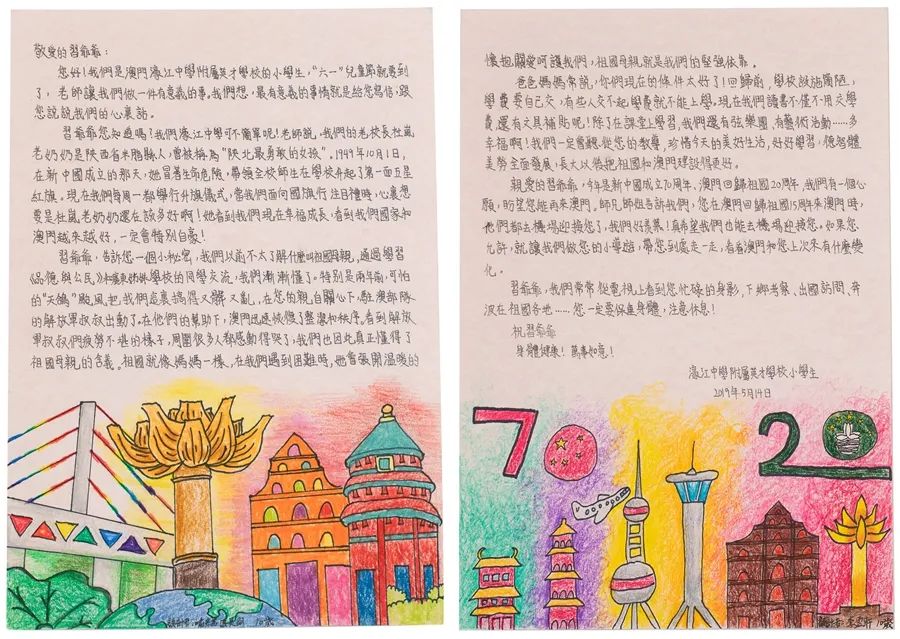 敬愛的習爺爺：
您好！我們是澳門濠江中學附屬英才學校的小學生，“六一”兒童節就要到
了，老師讓我們做一件有意義的事。我們想，最有意義的事情就是給您寫信，跟
您說說我們的心裏話。
習爺爺您知道嗎？我們濠江中學可不簡單呢！老師說，我們的老校長杜嵐
老奶奶是陝西省米脂縣人，曾被稱為“陝北最勇敢的女孩”。1949年10月1日，
在新中國成立的那天，她冒著生命危險，帶領全校師生在學校升起了第一面五星
紅旗。現在我們每周一都舉行升旗儀式，當我們面向國旗行注目禮時，心裏想
要是杜嵐老奶奶還在該多好啊！她看到我們現在幸福成長，看到我們國家和
澳門越來越好，一定會特別自豪！
習爺爺，告訴您一個小秘密，我們以前不太了解什麼叫祖國母親，通過學習
《品德與公民》、和廣東姊妹學校的同學交流，我們漸漸懂了。特別是兩年前，可怕
的“天鴿”颱風把我們這裏搞得又髒又亂，在您的親自關心下，駐澳部隊
的解放軍叔叔出動了。在他們的幫助下，澳門迅速恢復了整潔和秩序。看到解放
軍叔叔們疲勞不堪的樣子，周圍很多人都感動得哭了，我們也因此真正懂得了
祖國母親的含義。祖國就像媽媽一樣，在我們遇到困難時，她會張開溫暖的
懷抱關愛呵護我們，祖國母親就是我們的堅強依靠。
爸爸媽媽常說，你們現在的條件太好了！回歸前，學校設施簡陋，
學費要自己交，有些人交不起學費就不能上學。現在我們讀書不僅不用交學
費，還有文具補貼呢！除了在課堂上學習，我們還有弦樂團，有藝術活動……多
幸福啊！我們一定會聽從您的教導，珍惜今天的美好生活，好好學習，德智體
美勞全面發展，長大以後把祖國和澳門建設得更好。
親愛的習爺爺，今年是新中國成立70周年、澳門回歸祖國20周年，我們有一個心
願，盼望您能再來澳門。師兄師姐告訴我們，您在澳門回歸祖國15周年來澳門時，
他們都去機場迎接您了，我們好羨慕！真希望我們也能去機場迎接您。如果您
允許，就讓我們做您的小導遊，帶您到處走一走，看看澳門和您上次來有什麼變
化。
習爺爺，我們常常從電視上看到您忙碌的身影，下鄉考察、出國訪問、奔
波在祖國各地……您一定要保重身體，注意休息！
祝習爺爺
身體健康！萬事如意！
濠江中學附屬英才學校小學生
2019年5月14日
70 20
10歲
10歲